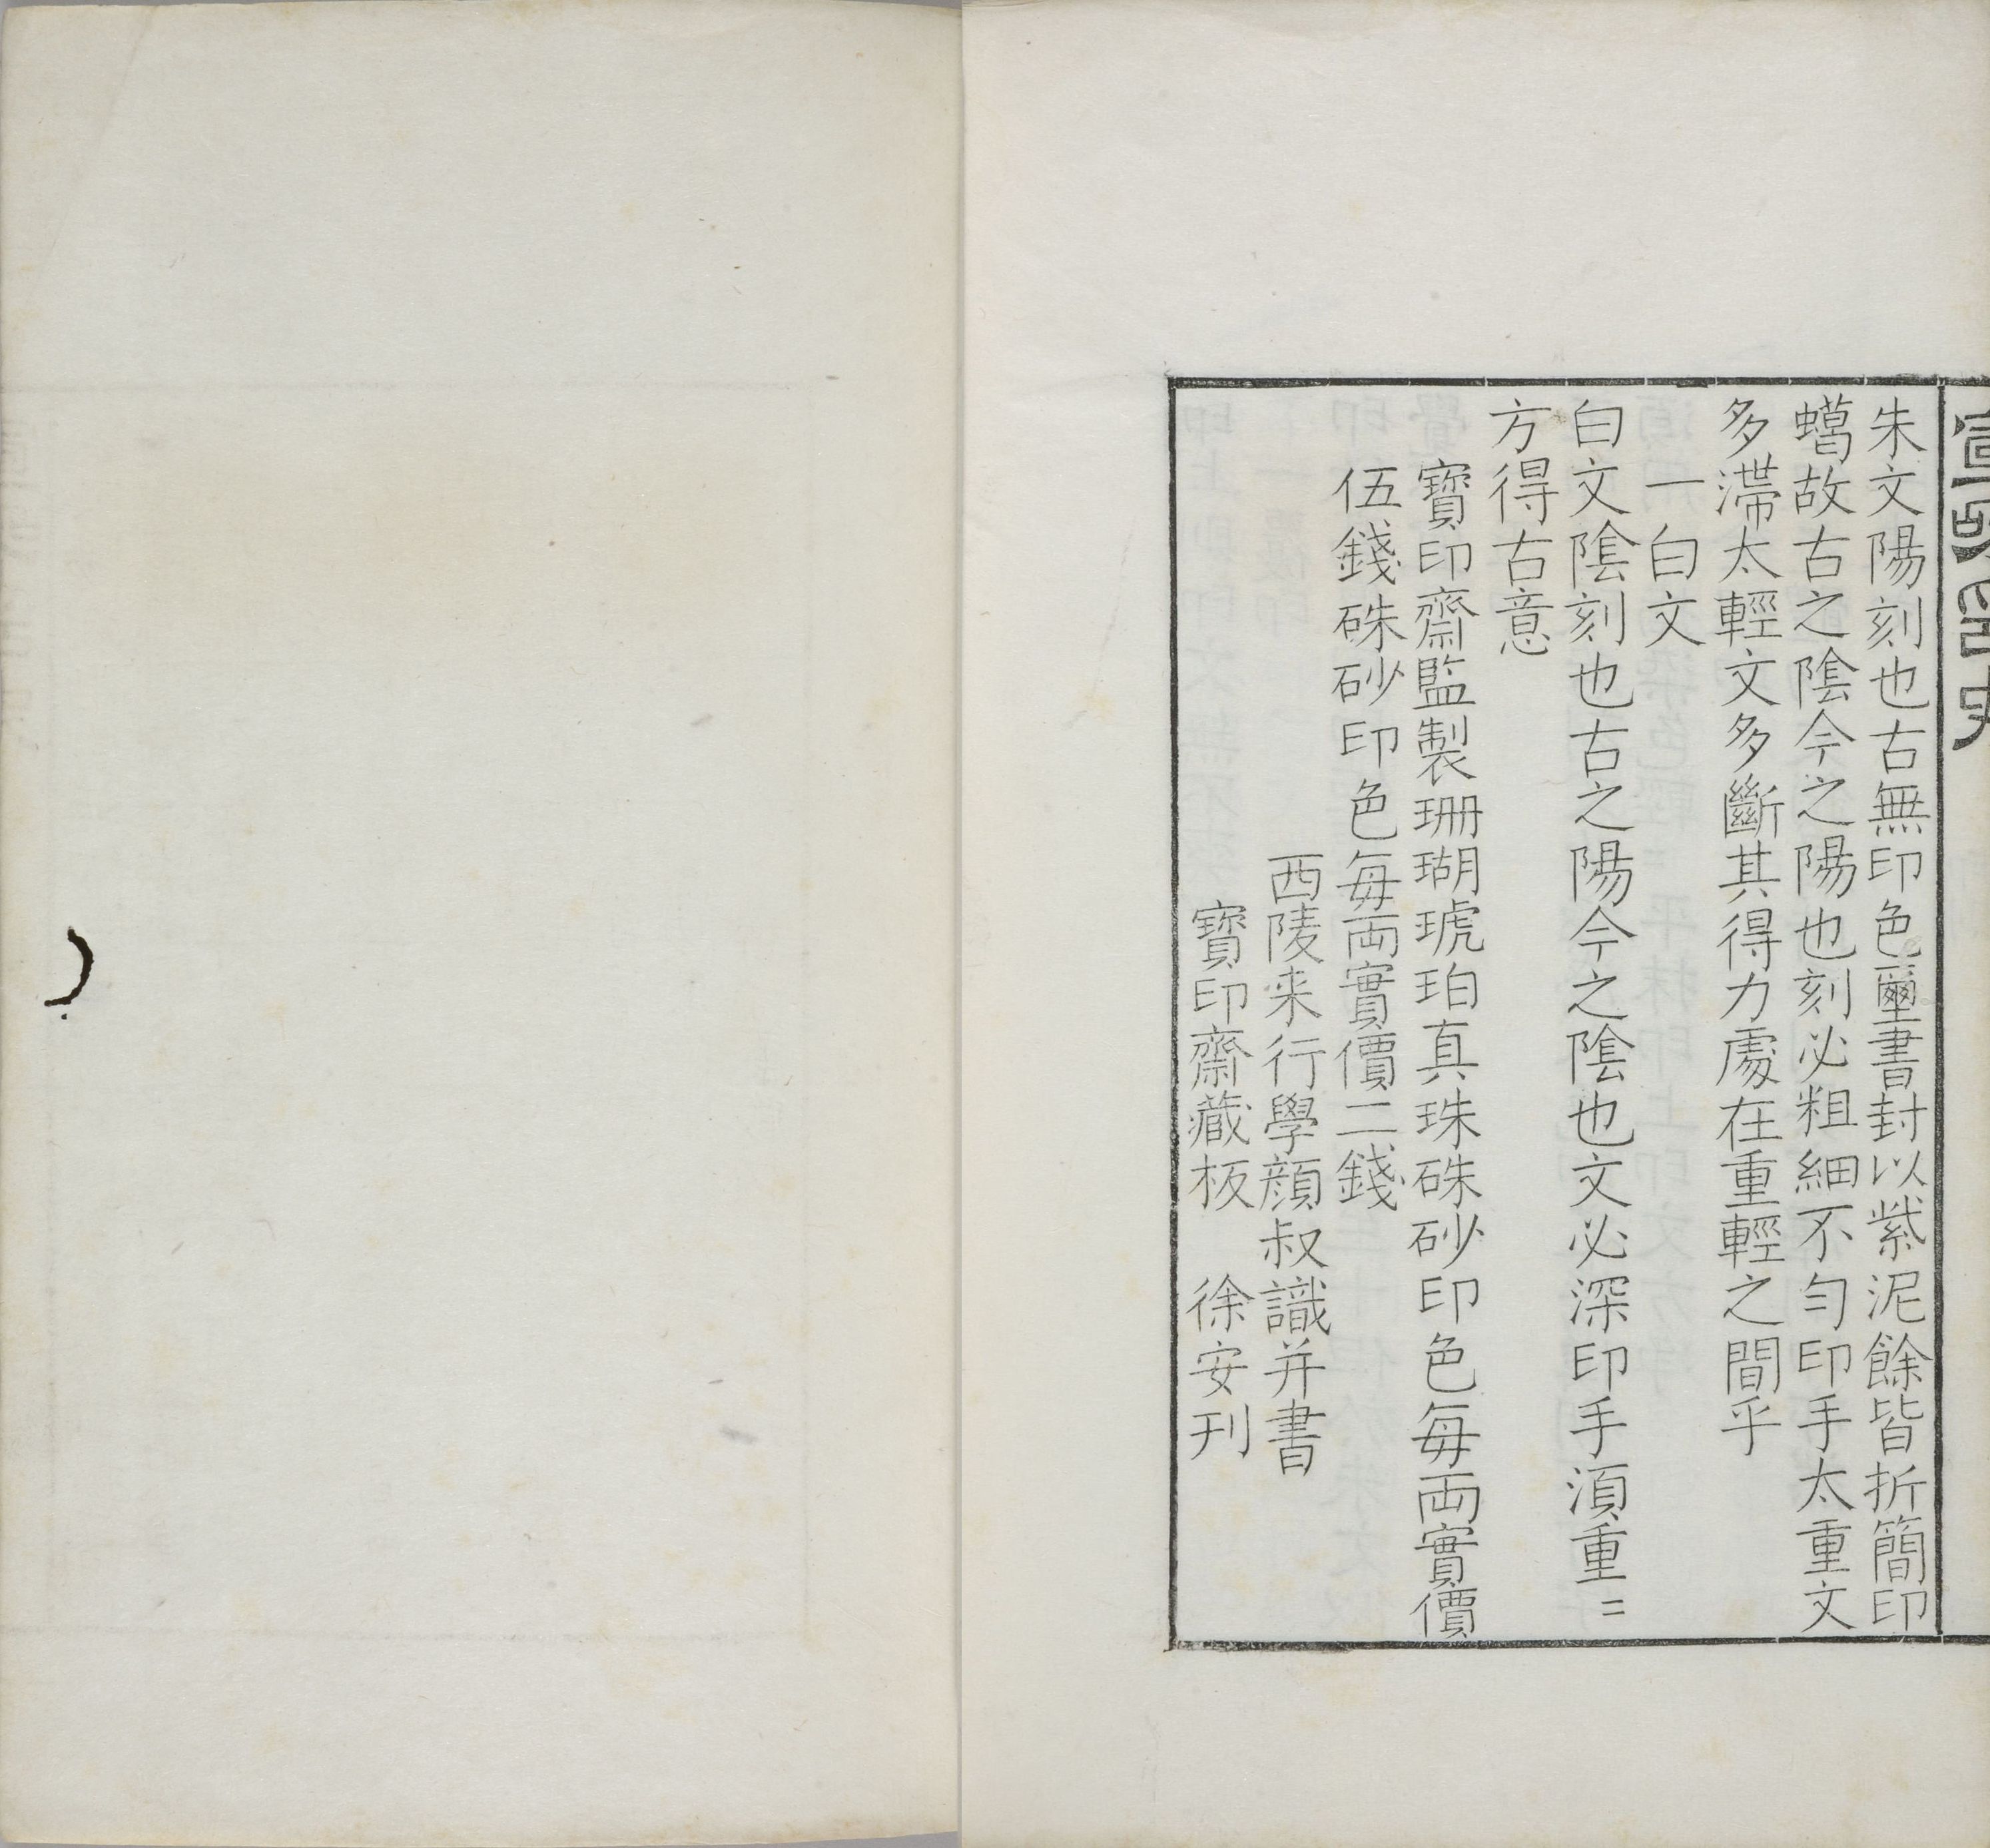 朱文陽刻也古無印色璽書封以紫泥餘皆折簡印
蠟故古之陰今之陽也刻必粗細不勻印手太重文
多滯太輕文多斷其得力處在重輕之間乎
一白文
白文陰刻也古之陽今之陰也文必深印手湏重〻
方得古意
寶印齋監製珊瑚琥珀真珠硃砂印色每両實價
伍錢硃砂印色每両實價二錢
西陵来行學顔叔識并書
寶印齋藏板　徐安刊